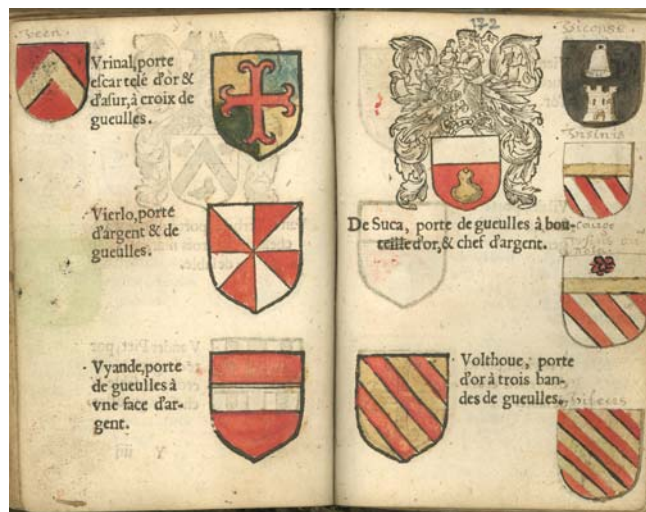 Veen.
Vrinal, porte
escartelé d'or &
d'asur, à croix de
gueulles.
Vierlo, porte
d'argent & de
gueulles.
Vyande, porte
de gueulles à
vne face d'ar-
gent.
172
De Suca, porte de gueulles à bou-
teille d'or, & chef d'argent.
Volthoue, porte
d'or à trois ban-
des de gueulles.
Viconse.
Vrsinis